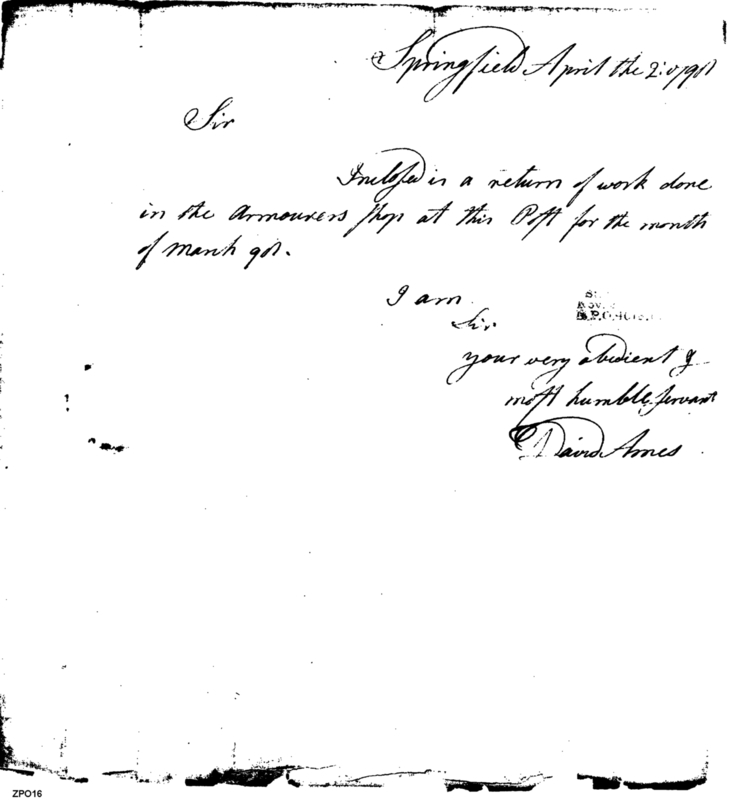 Springfield April the 2: 0/98
Sir
Inclosed is a return of work done
in the Armourers shop at this Post for the month
of March 98.
I am
Sir
your very obedient &
most humble servant
David Ames
ZPO16